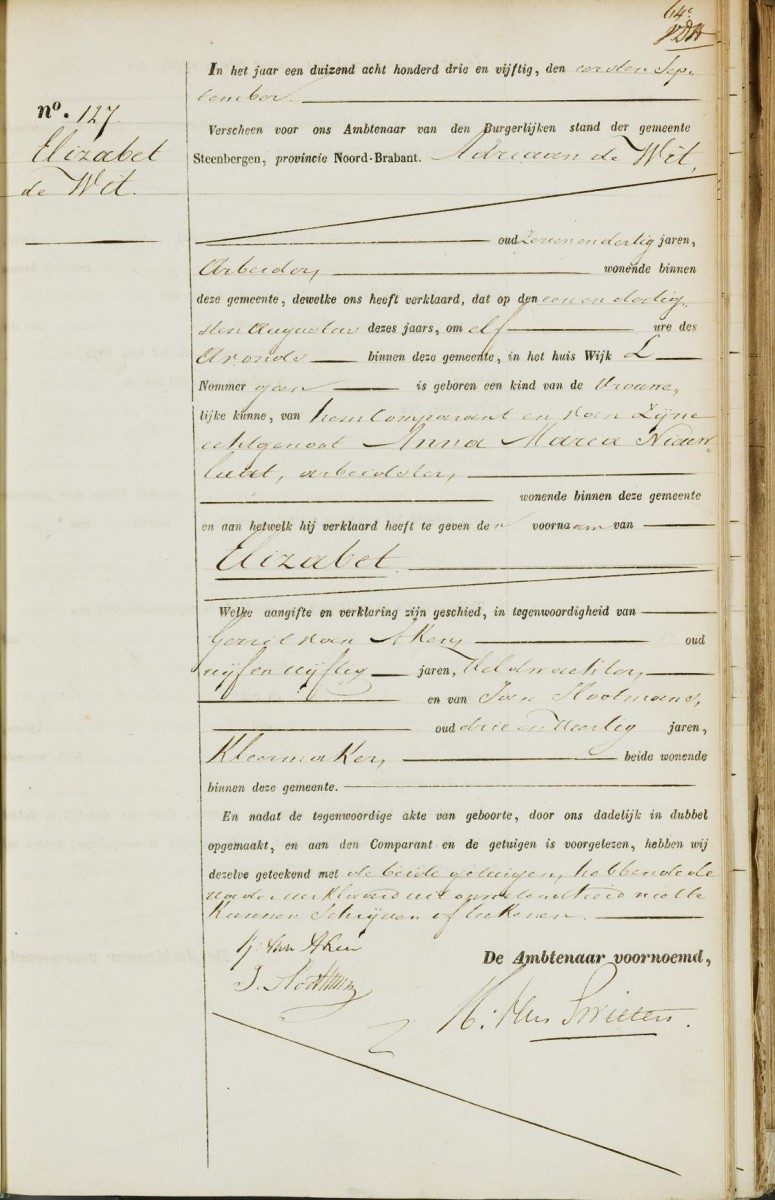 64e
In het jaar een duizend acht honderd drie en vijftig, den eersten Sep-
tember.
no. 127
Elizabet
de Wit.
Verscheen voor ons Ambtenaar van den Burgerlijken stand der gemeente
Steenbergen, provincie Noord-Brabant. Adriaan de Wit,
oud zeven en dertig jaren,
Arbeider, wonende binnen
deze gemeente, dewelke ons heeft verklaard, dat op den een en dertig-
sten Augustus dezes jaars, om elf ure des
avonds binnen deze gemeente, in het huis Wijk L
Nommer geen is geboren een kind van de vrouwe-
lijke kunne, van hem Comparant en van Zijne
echtgenoot Anna Maria Nieuw-
laat, arbeidster,
wonende binnen deze gemeente
en aan hetwelk hij verklaard heeft te geven den voornaam van
Elizabet.
Welke aangifte en verklaring zijn geschied, in tegenwoordigheid van
Gerrit van Aken, oud
vijf en vijftig jaren, Veldwachter,
en van Jan Slootmans,
oud drie en veertig jaren,
Kleermaker, beide wonende
binnen deze gemeente.
En nadat de tegenwoordige akte van geboorte, door ons dadelijk in dubbel
opgemaakt, en aan den Comparant en de getuigen is voorgelezen, hebben wij
dezelve geteekend met de beide getuigen, hebbende de
vader verklaard uit onwetendheid niet te
kunnen Schrijven of teekenen.
G. van Aken
De Ambtenaar voornoemd,